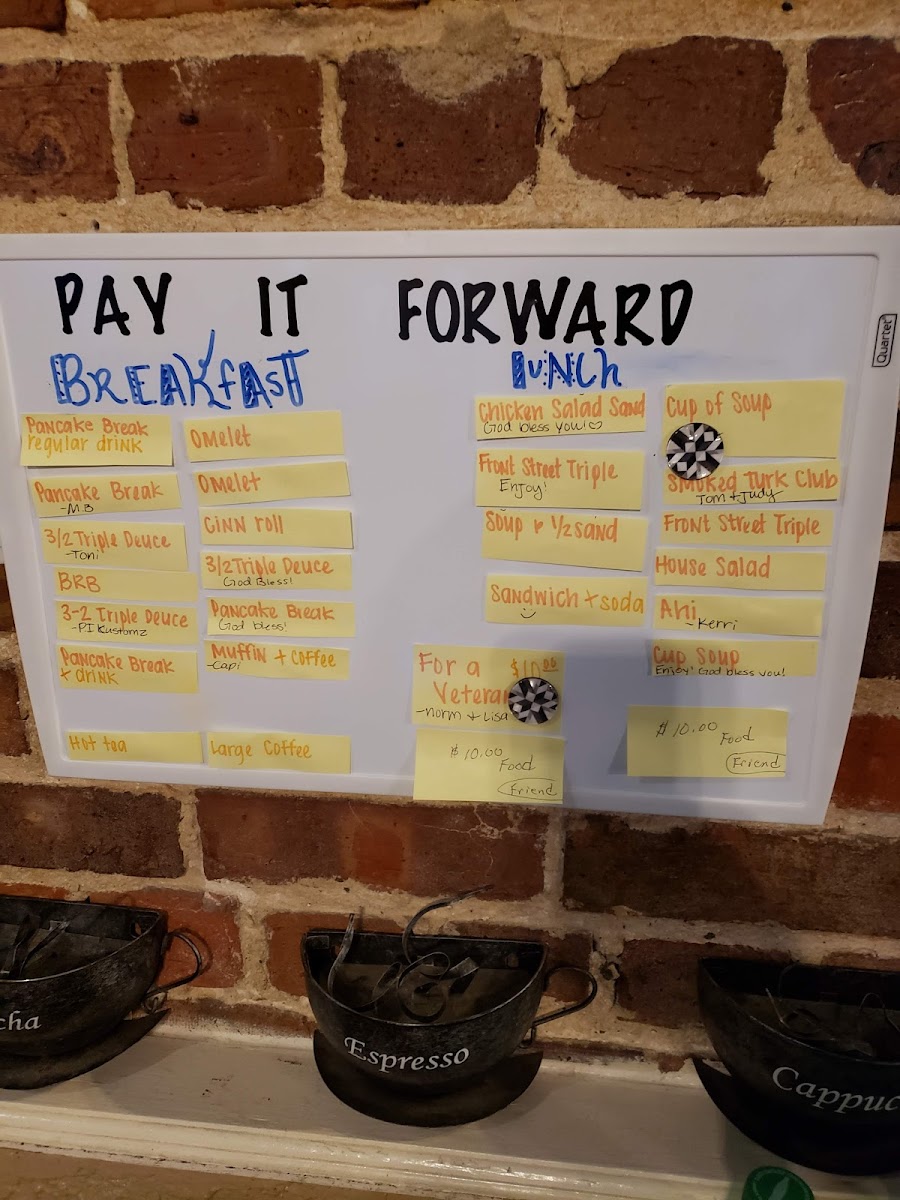 PAY IT FORWARD
Quartet
BREAKfAST
Pancake Break
regular drink
Pancake Break
-M.B
3/2 Triple Deuce
-Toni
BRB
3-2 Triple Deuce
-PI Kustomz
Pancake Break
+ drink
Hot tea
Omelet
Omelet
Cinn roll
3/2 Triple Deuce
God Bless!
Pancake Break
God bless!
Muffin + Coffee
-Capi
Large Coffee
LUNCh
Chicken Salad Sand
God bless you!
Front Street Triple
Enjoy!
Soup & 1/2 sand
Sandwich + soda
For a $10.00
Veteran
-norm + Lisa
$10.00
Food
Friend
Cup of Soup
Smoked Turk Club
Tom + Judy
Front Street Triple
House Salad
Ahi
-Kerri
Cup Soup
Enjoy! God bless you!
$10.00
Food
Friend
cha
Espresso
Cappuc